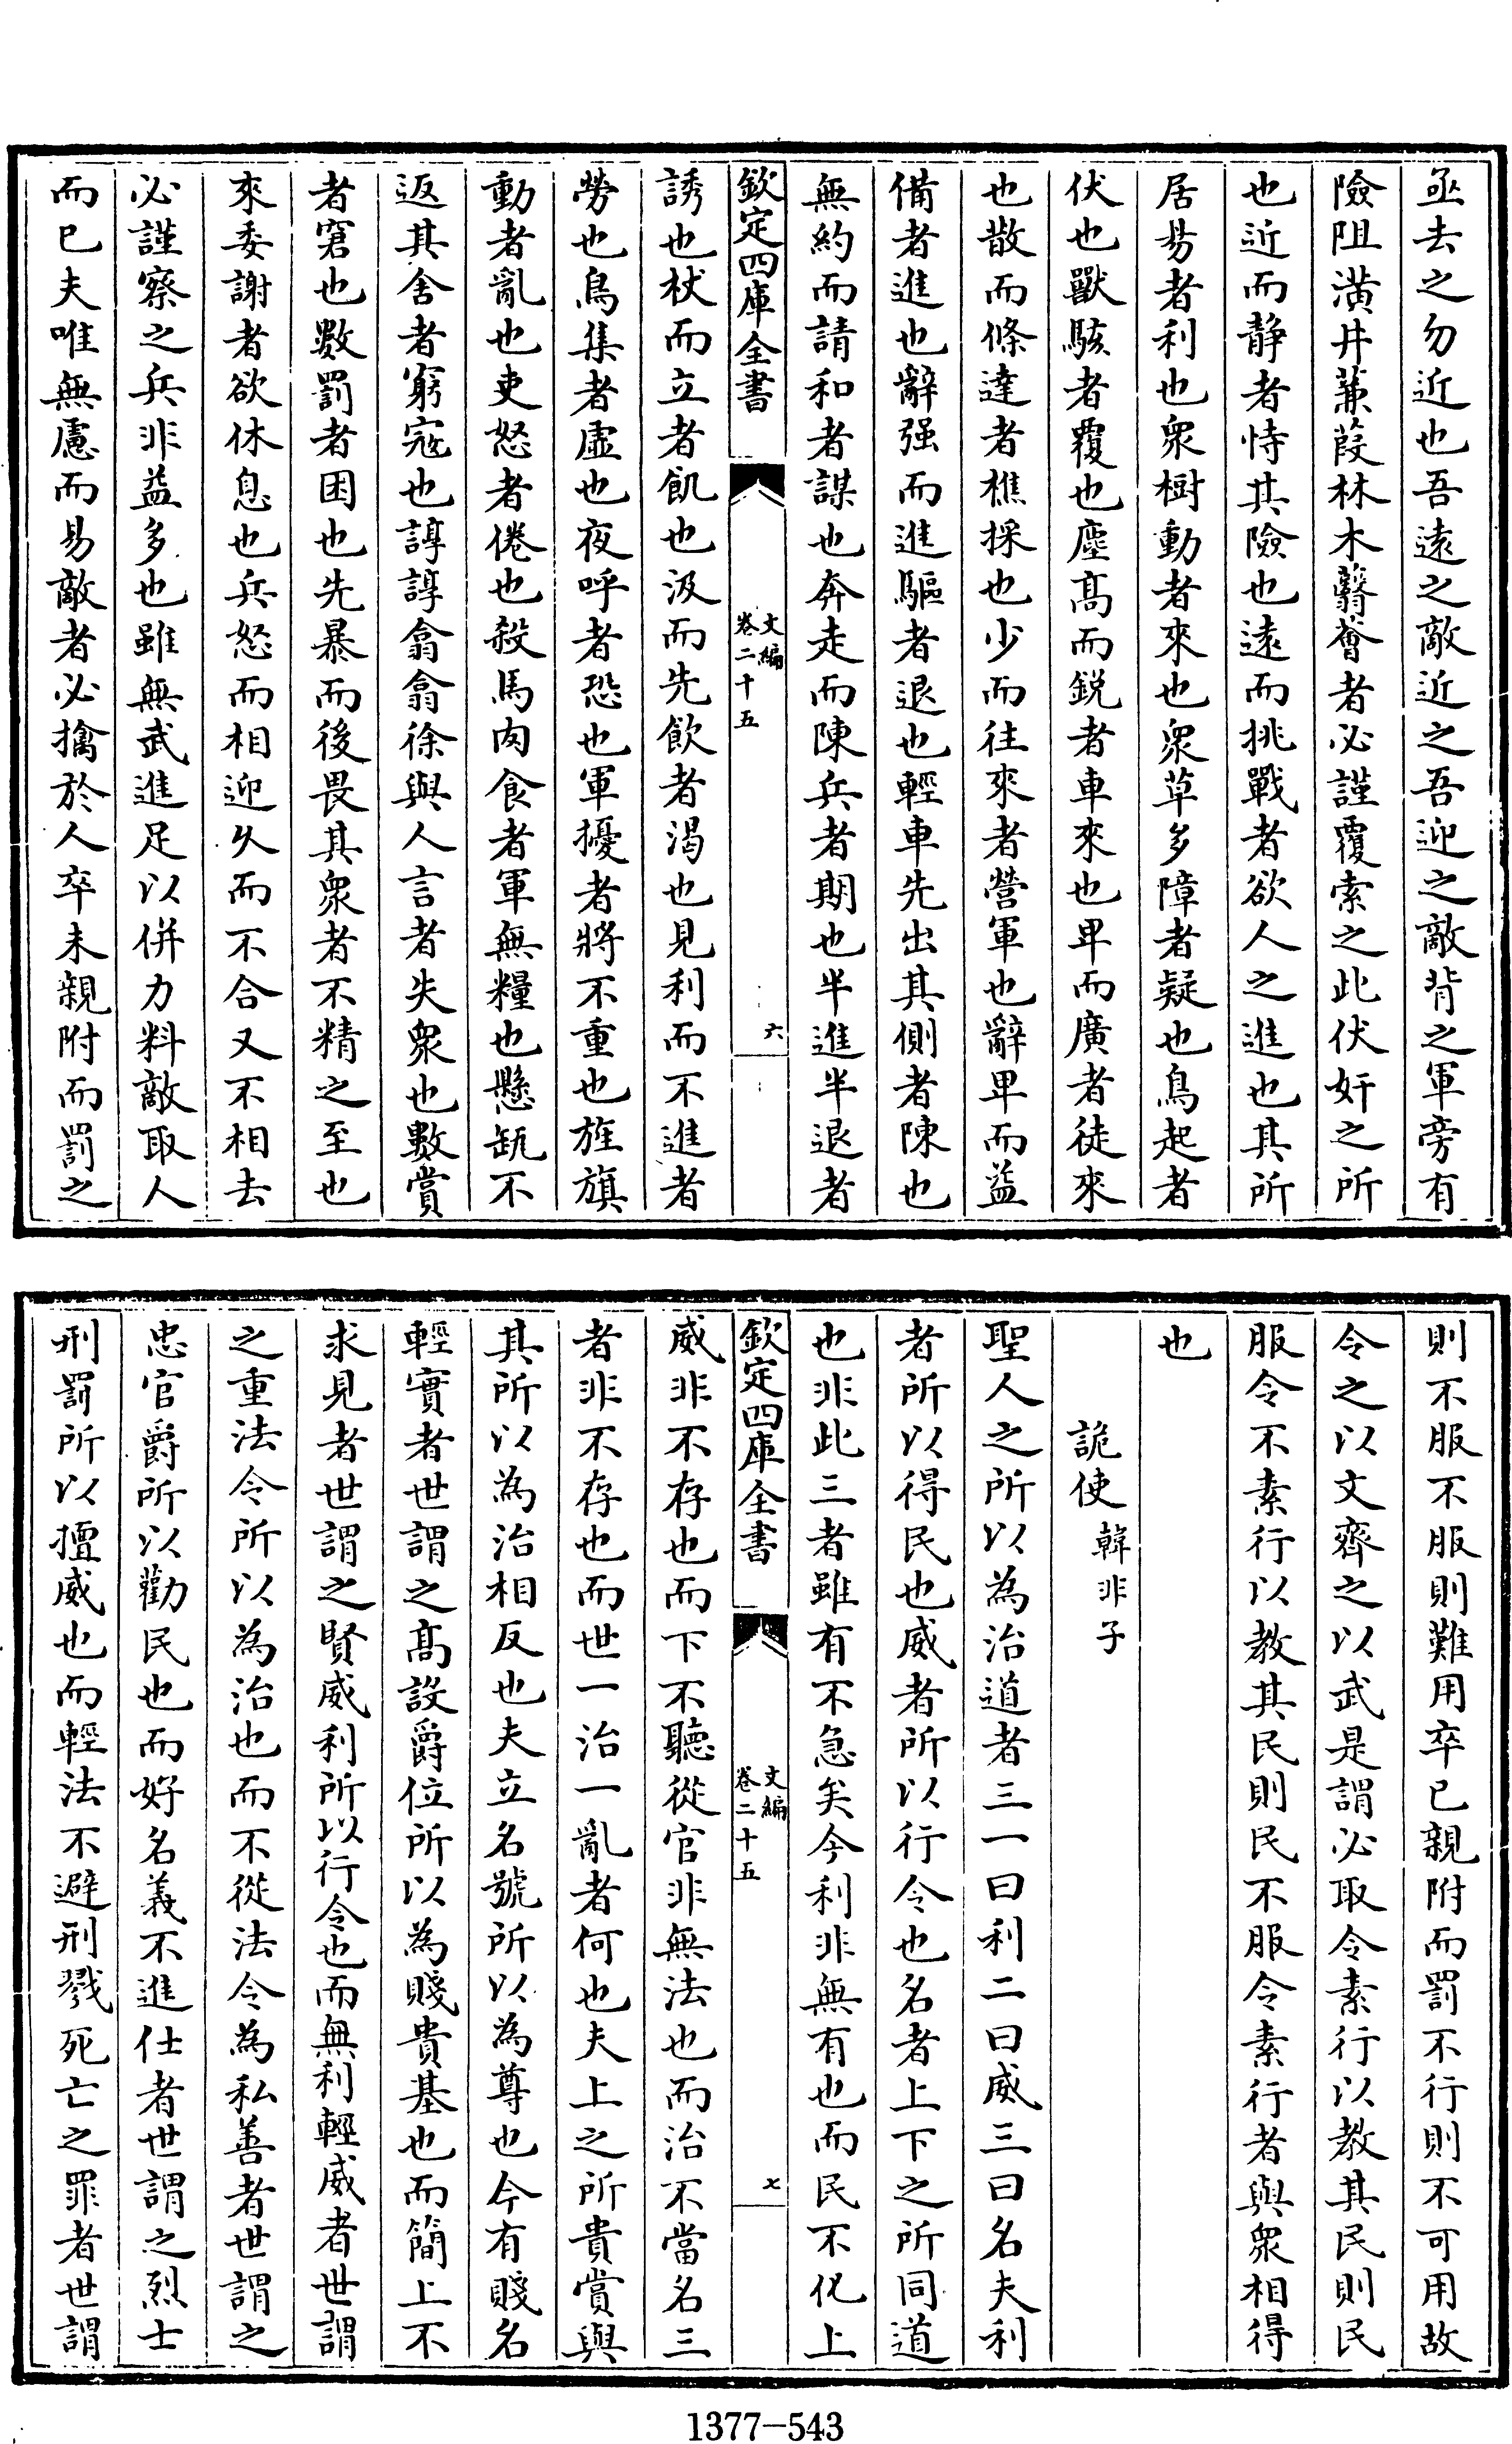 亟去之勿近也吾遠之敵近之吾迎之敵背之軍旁有
險阻潢井蒹葭林木蘙薈者必謹覆索之此伏奸之所
也近而静者恃其險也遠而挑戰者欲人之進也其所
居易者利也衆樹動者來也衆草多障者疑也鳥起者
伏也獸駭者覆也塵髙而鋭者車來也卑而廣者徒來
也散而條達者樵採也少而往來者營軍也辭卑而益
備者進也辭强而進驅者退也輕車先出其側者陳也
無約而請和者謀也奔走而陳兵者期也半進半退者
欽定四庫全書
文編
卷二十五
六
誘也杖而立者飢也汲而先飲者渇也見利而不進者
勞也鳥集者虚也夜呼者恐也軍擾者將不重也旌旗
動者亂也吏怒者倦也殺馬肉食者軍無糧也懸缻不
返其舍者窮寇也諄諄翕翕徐與人言者失衆也數賞
者窘也數罰者困也先暴而後畏其衆者不精之至也
來委謝者欲休息也兵怒而相迎久而不合又不相去
必謹察之兵非益多也雖無武進足以併力料敵取人
而已夫唯無慮而易敵者必擒於人卒未親附而罰之
則不服不服則難用卒已親附而罰不行則不可用故
令之以文齊之以武是謂必取令素行以教其民則民
服令不素行以教其民則民不服令素行者與衆相得
也
詭使 韓非子
聖人之所以為治道者三一曰利二曰威三曰名夫利
者所以得民也威者所以行令也名者上下之所同道
也非此三者雖有不急矣今利非無有也而民不化上
欽定四庫全書
文編
卷二十五
七
威非不存也而下不聽從官非無法也而治不當名三
者非不存也而世一治一亂者何也夫上之所貴賞與
其所以為治相反也夫立名號所以為尊也今有賤名
輕實者世謂之髙設爵位所以為賤貴基也而簡上不
求見者世謂之賢威利所以行令也而無利輕威者世謂
之重法令所以為治也而不從法令為私善者世謂之
忠官爵所以勸民也而好名義不進仕者世謂之烈士
刑罰所以擅威也而輕法不避刑戮死亡之罪者世謂
1377-543